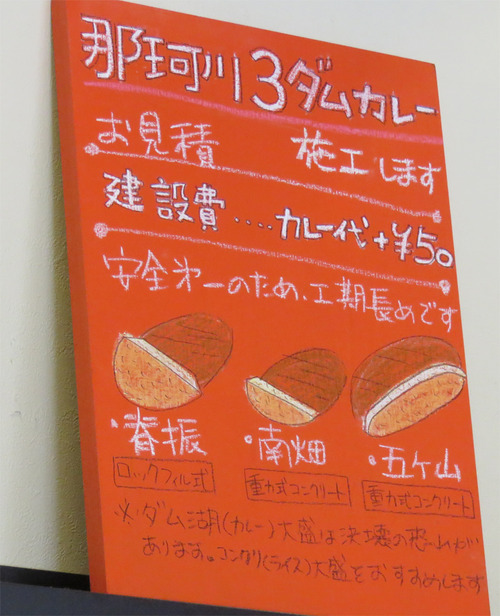 那珂川3ダムカレー
お見積 施工します
建設費‥‥カレー代+¥50
安全第一のため、工期長めです
・脊振
ロックフィル式
・南畑
重力式コンクリート
・五ケ山
重力式コンクリート
※ダム湖(カレー)大盛は決壊の恐れが
あります。コンクリ(ライス)大盛をおすすめします